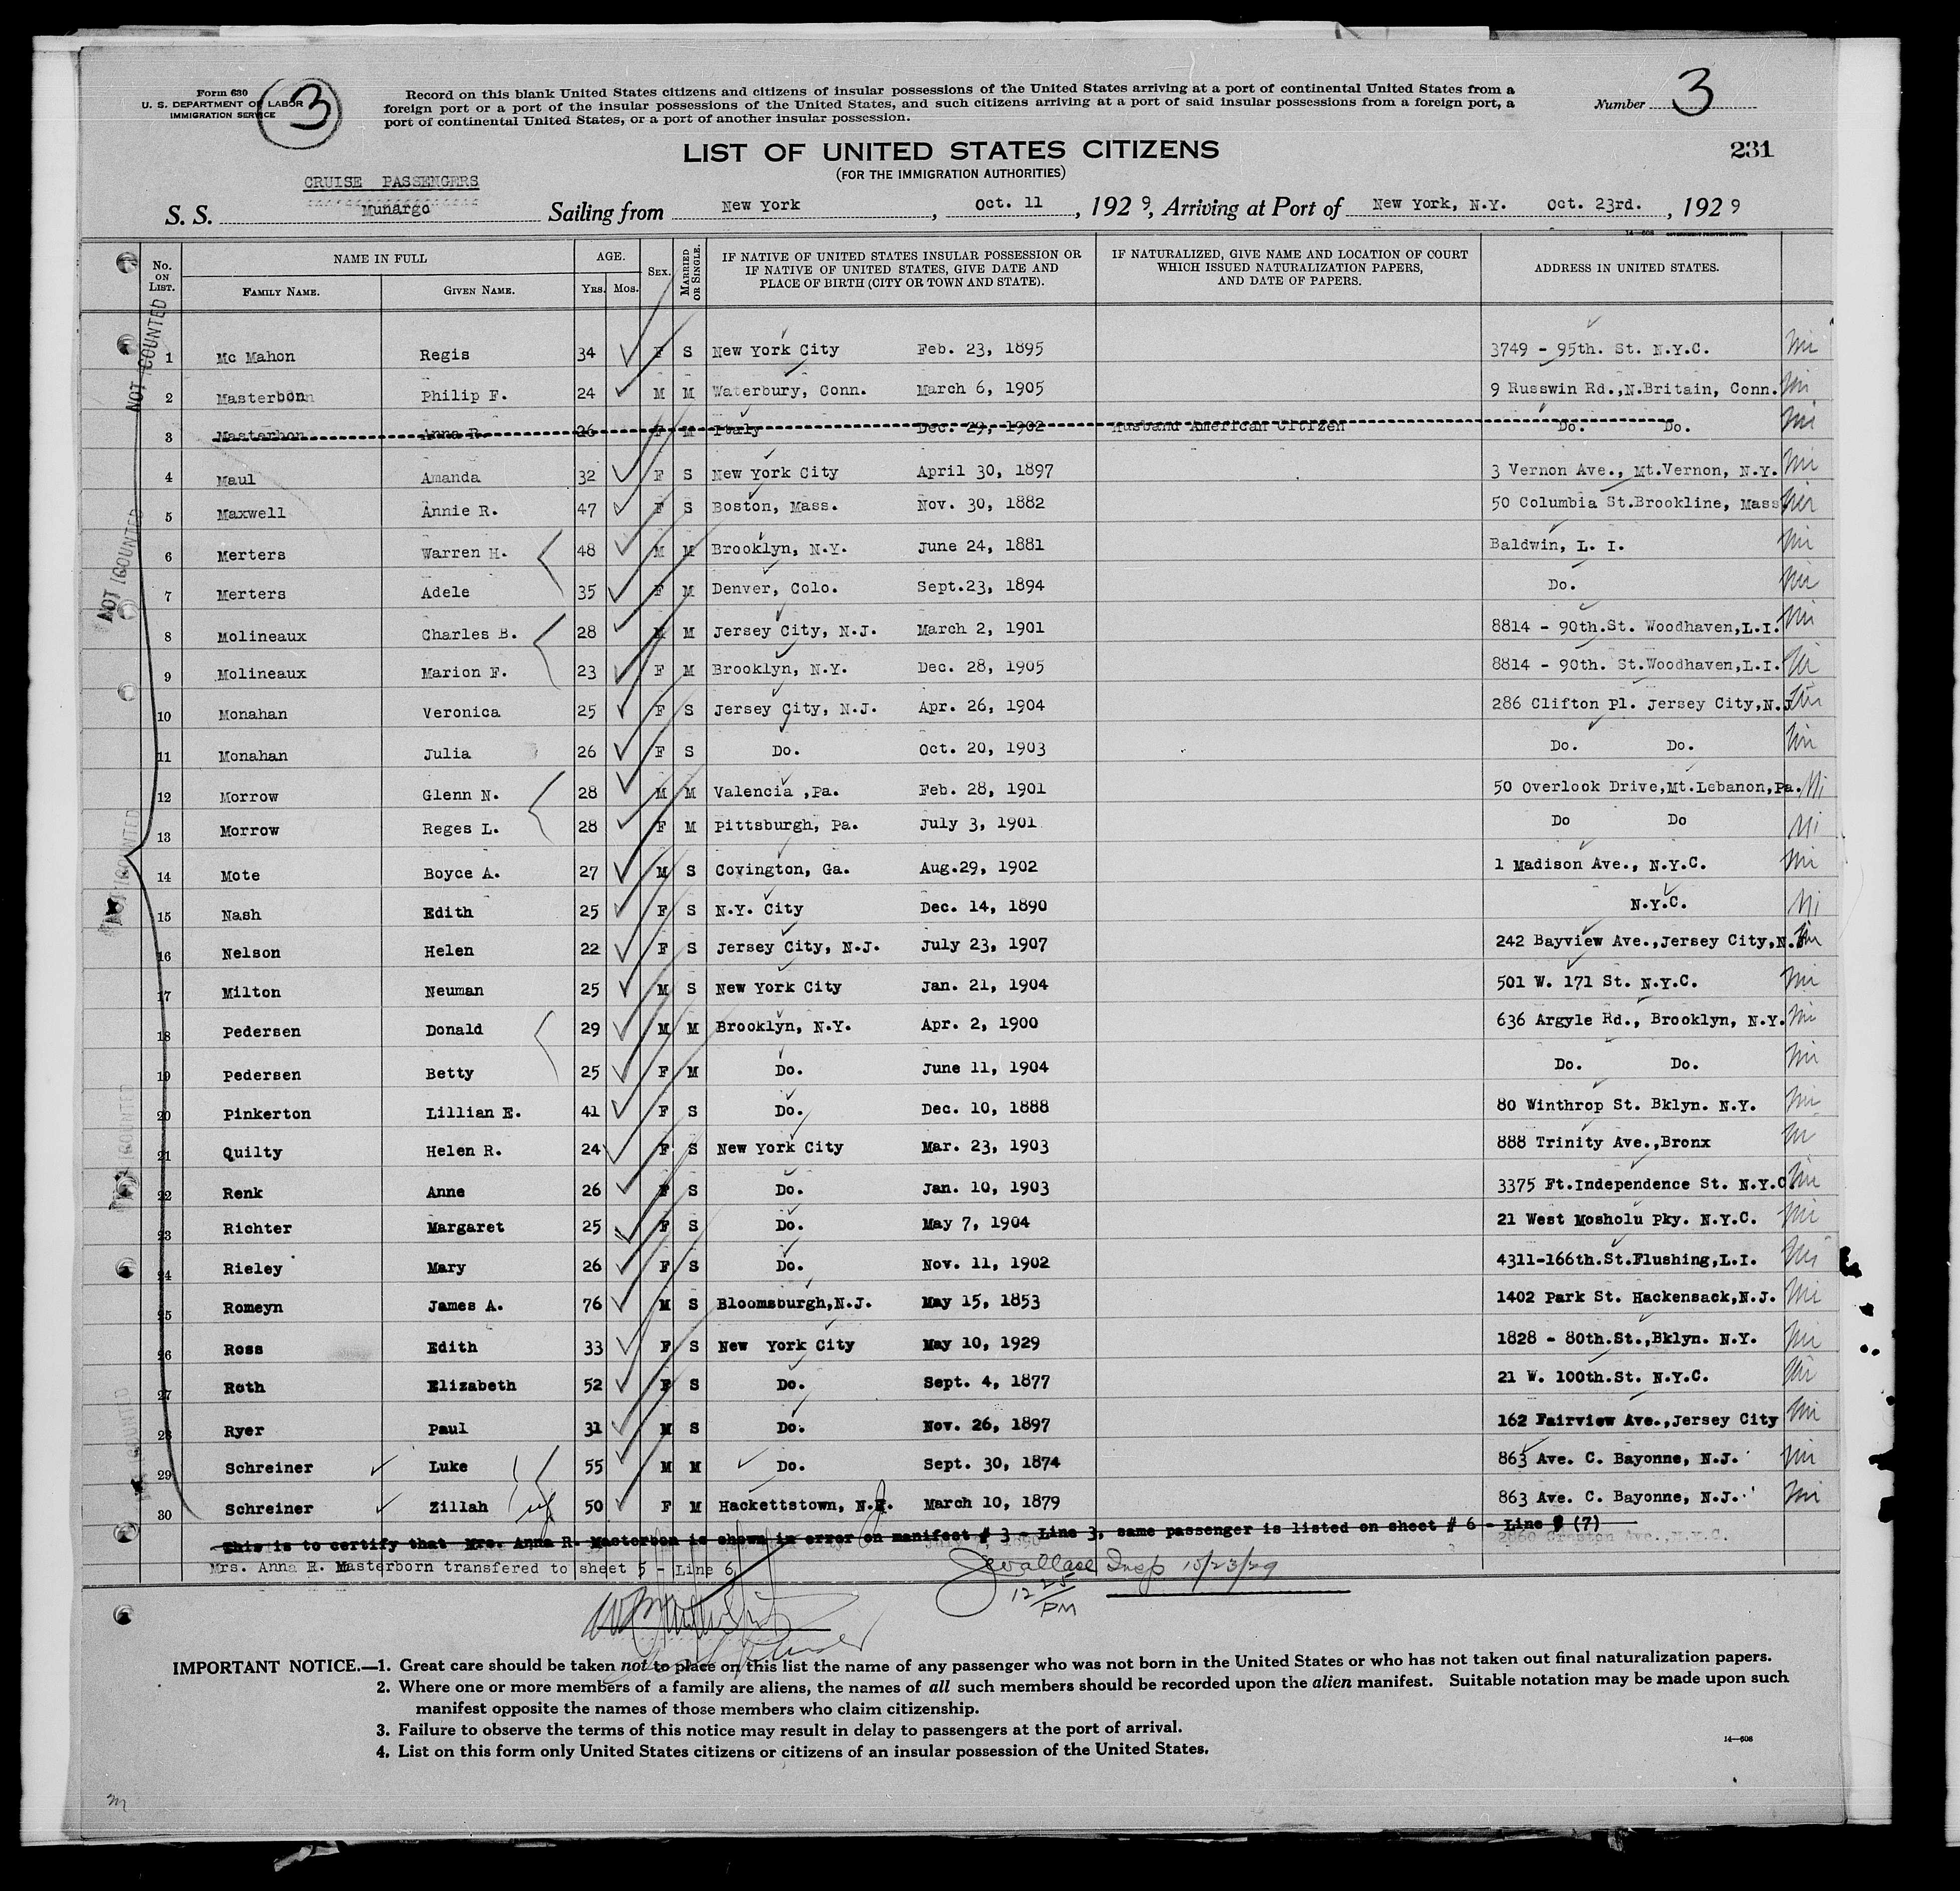 Form 630
U. S. DEPARTMENT OF LABOR
IMMIGRATION SERVICE
3
Record on this blank United States citizens and citizens of insular possessions of the United States arriving at a port of continental United States from a
foreign port or a port of the insular possessions of the United States, and such citizens arriving at a port of said insular possessions from a foreign port, a
port of continental United States, or a port of another insular possession.
Number 3
LIST OF UNITED STATES CITIZENS
(FOR THE IMMIGRATION AUTHORITIES)
231
CRUISE PASSENGERS
S. S. Munargo Sailing from New York, Oct. 11, 1929, Arriving at Port of New York, N.Y. Oct. 23rd., 1929
No. ON LIST. NAME IN FULL FAMILY NAME. GIVEN NAME. AGE. YRS. MOS. SEX. MARRIED OR SINGLE. IF NATIVE OF UNITED STATES INSULAR POSSESSION OR IF NATIVE OF UNITED STATES, GIVE DATE AND PLACE OF BIRTH (CITY OR TOWN AND STATE). IF NATURALIZED, GIVE NAME AND LOCATION OF COURT WHICH ISSUED NATURALIZATION PAPERS, AND DATE OF PAPERS. ADDRESS IN UNITED STATES.
1 Mc Mahon Regis 34 F S New York City Feb. 23, 1895 3749 - 95th. St. N.Y.C.
2 Masterbon Philip F. 24 M M Waterbury, Conn. March 6, 1905 9 Russwin Rd.,N.Britain, Conn.
3 Masterbon Anna R. 26 F M Italy Dec. 29, 1902 Husband American Citizen Do. Do.
4 Maul Amanda 32 F S New York City April 30, 1897 3 Vernon Ave., Mt.Vernon, N.Y.
5 Maxwell Annie R. 47 F S Boston, Mass. Nov. 30, 1882 50 Columbia St.Brookline, Mass
6 Merters Warren H. 48 M M Brooklyn, N.Y. June 24, 1881 Baldwin, L. I.
7 Merters Adele 35 F M Denver, Colo. Sept.23, 1894 Do.
8 Molineaux Charles B. 28 M M Jersey City, N.J. March 2, 1901 8814 - 90th.St. Woodhaven,L.I.
9 Molineaux Marion F. 23 F M Brooklyn, N.Y. Dec. 28, 1905 8814 - 90th. St.Woodhaven,L.I.
10 Monahan Veronica 25 F S Jersey City, N.J. Apr. 26, 1904 286 Clifton Pl. Jersey City,N.J
11 Monahan Julia 26 F S Do. Oct. 20, 1903 Do. Do.
12 Morrow Glenn N. 28 M M Valencia ,Pa. Feb. 28, 1901 50 Overlook Drive,Mt.Lebanon,Pa.
13 Morrow Reges L. 28 F M Pittsburgh, Pa. July 3, 1901 Do Do
14 Mote Boyce A. 27 M S Covington, Ga. Aug.29, 1902 1 Madison Ave., N.Y.C.
15 Nash Edith 25 F S N.Y. City Dec. 14, 1890 N.Y.C.
16 Nelson Helen 22 F S Jersey City, N.J. July 23, 1907 242 Bayview Ave.,Jersey City,N.J
17 Milton Neuman 25 M S New York City Jan. 21, 1904 501 W. 171 St. N.Y.C.
18 Pedersen Donald 29 M M Brooklyn, N.Y. Apr. 2, 1900 636 Argyle Rd., Brooklyn, N.Y.
19 Pedersen Betty 25 F M Do. June 11, 1904 Do. Do.
20 Pinkerton Lillian E. 41 F S Do. Dec. 10, 1888 80 Winthrop St. Bklyn. N.Y.
21 Quilty Helen R. 24 F S New York City Mar. 23, 1903 888 Trinity Ave.,Bronx
22 Renk Anne 26 F S Do. Jan. 10, 1903 3375 Ft.Independence St. N.Y.C.
23 Richter Margaret 25 F S Do. May 7, 1904 21 West Mosholu Pky. N.Y.C.
24 Rieley Mary 26 F S Do. Nov. 11, 1902 4311-166th.St.Flushing,L.I.
25 Romeyn James A. 76 M S Bloomsburgh,N.J. May 15, 1853 1402 Park St. Hackensack,N.J.
26 Ross Edith 33 F S New York City May 10, 1929 1828 - 80th.St.,Bklyn. N.Y.
27 Roth Elizabeth 52 F S Do. Sept. 4, 1877 21 W. 100th.St. N.Y.C.
28 Ryer Paul 31 M S Do. Nov. 26, 1897 162 Fairview Ave.,Jersey City
29 Schreiner Luke 55 M M Do. Sept. 30, 1874 863 Ave. C. Bayonne, N.J.
30 Schreiner Zillah 50 F M Hackettstown, N.J. March 10, 1879 863 Ave. C. Bayonne, N.J.
This is to certify that Mrs. Anna R. Masterbon is shown in error on manifest # 3 - Line 3, same passenger is listed on sheet # 6 - Line (7)
Mrs. Anna R. Masterborn transfered to sheet 5 - Line 6
Jwallace Insp 10/23/29
12 25 PM
NOT COUNTED
NOT COUNTED
NOT COUNTED
IMPORTANT NOTICE.—1. Great care should be taken not to place on this list the name of any passenger who was not born in the United States or who has not taken out final naturalization papers.
2. Where one or more members of a family are aliens, the names of all such members should be recorded upon the alien manifest. Suitable notation may be made upon such
manifest opposite the names of those members who claim citizenship.
3. Failure to observe the terms of this notice may result in delay to passengers at the port of arrival.
4. List on this form only United States citizens or citizens of an insular possession of the United States.
14—608